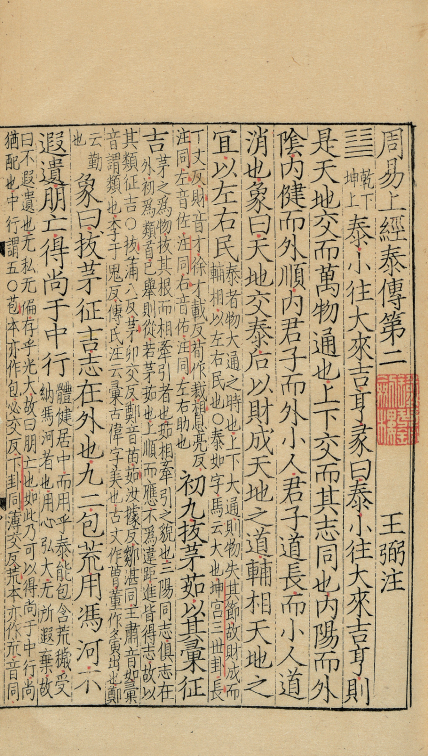 周易上經泰傳第二 王弼注
乾下坤上 泰小往大來吉亨彖曰泰小往大來吉亨則
是天地交而萬物通也上下交而其志同也内陽而外
陰内健而外順内君子而外小人君子道長而小人道
消也象曰天地交泰后以財成天地之道輔相天地之
宜以左右民 泰者物大通之時也上下大通則物失其節故財成而輔相以左右民也○泰如字馬云大也坤宫三世卦長
丁丈反財音才徐才載反荀作裁相息亮反注同左音佐注同右音佑注同左右助也 初九拔茅茹以其彙征
吉 茅之爲物拔其根而相牽引者也茹相牽引之貌也三陽同志俱志在外初爲類首己舉則從若茅茹也上順而應不爲違距進皆得志故以
其類征吉○拔蒲八反茅卯交反鄭音苗茹汝據反鄒湛同王肅音如彙音謂類也李于鬼反傅氏注云彙古偉字美也古文作曹董作夤出也鄭
云勤也 象曰拔茅征吉志在外也九二包荒用馮河不
遐遺朋亡得尚于中行 體健居中而用乎泰能包含荒穢受納馮河者也用心弘大无所遐棄故
曰不遐遺也无私无偏存乎光大故曰朋亡也如此乃可以得尚于中行尚猶配也中行謂五○苞本亦作包必交反下卦同薄交反荒本亦作巟音同